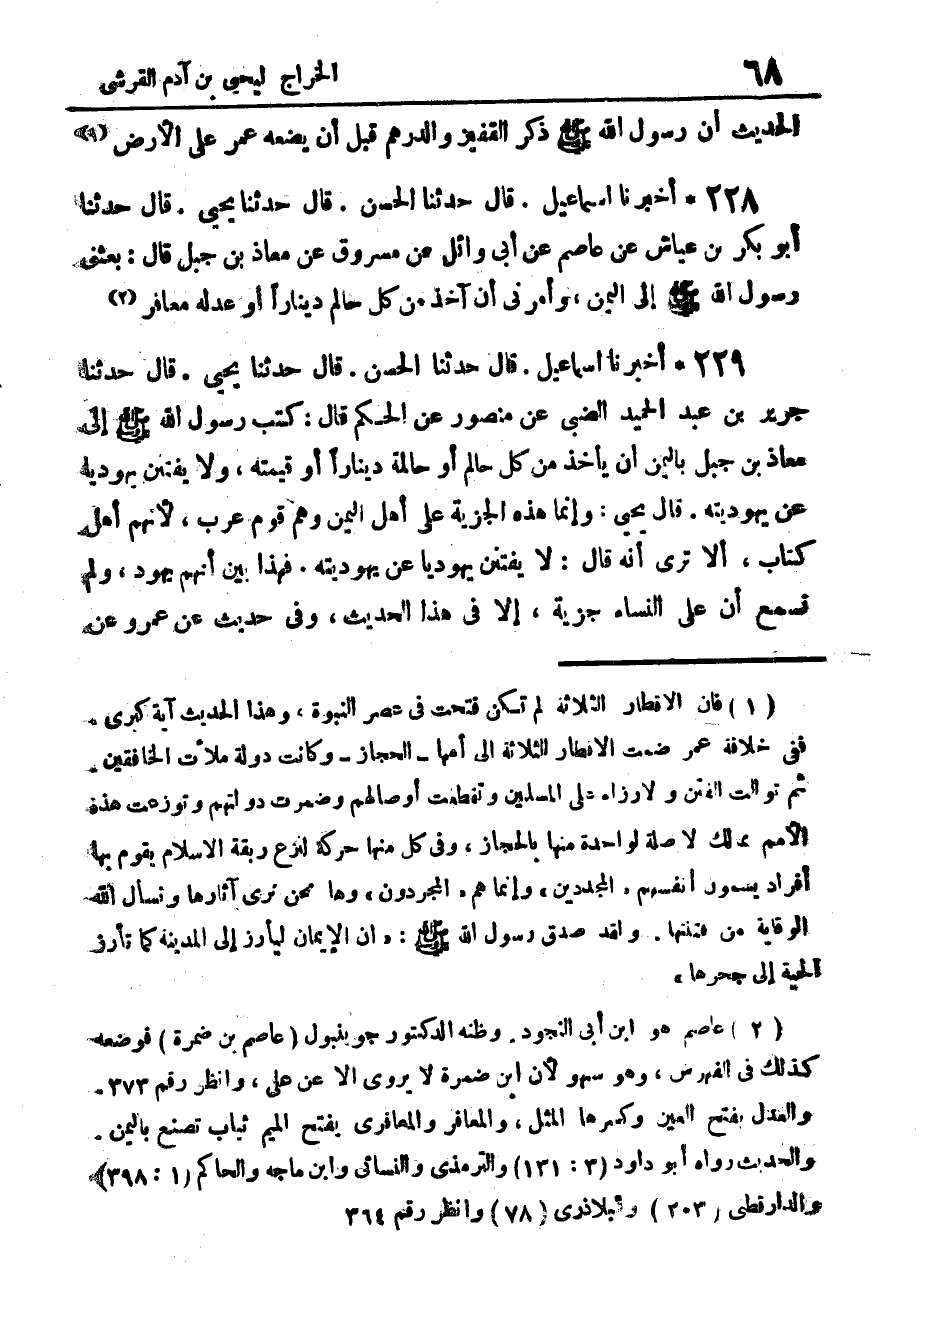 ٦٨
الخراج ليحيى بن آدم القرشى
الحديث أن رسول الله ﷺ ذكر القفيز والدرهم قبل أن يضعه عمر على الأرض (١)
٢٢٨ * أخبرنا اسماعيل . قال حدثنا الحسن . قال حدثنا يحيى . قال حدثنا
أبو بكر بن عياش عن عاصم عن أبى وائل عن مسروق عن معاذ بن جبل قال : بعثنى
رسول الله ﷺ إلى اليمن ، وأمرنى أن آخذ من كل حالم ديناراً أو عدله معافر (٢)
٢٢٩ * أخبرنا اسماعيل . قال حدثنا الحسن . قال حدثنا يحيى . قال حدثنا
جرير بن عبد الحميد الضبى عن منصور عن الحكم قال : كتب رسول الله ﷺ إلى
معاذ بن جبل باليمن أن يأخذ من كل حالم أو حالمة ديناراً أو قيمته ، ولا يفتن يهودية
عن يهوديته . قال يحيى : وإنما هذه الجزية على أهل اليمن وهم قوم عرب ، لأنهم أهل
كتاب ، ألا ترى أنه قال : لا يفتن يهوديا عن يهوديته . فهذا بين أنهم يهود ، ولم
نسمع أن على النساء جزية ، إلا فى هذا الحديث ، وفى حديث عن عمرو عن
(١) فان الاقطار الثلاثة لم تكن فتحت فى عصر النبوة ، وهذا الحديث آية كبرى .
ففى خلافة عمر ضمت الاقطار الثلاثة الى أمها ـ الحجاز ـ وكانت دولة ملأت الخافقين .
ثم توالت الفتن والارزاء على المسلمين وتقطعت أوصالهم وضمرت دولتهم وتوزعت هذه
الأمم ممالك لا صلة لواحدة منها بالحجاز ، وفى كل منها حركة لنزع ربقة الاسلام يقوم بها
أفراد يسمون أنفسهم « المجددين » وإنما هم « المجردون » وها نحن نرى آثارها ونسأل الله
الوقاية من فتنتها . ولقد صدق رسول الله ﷺ : « ان الإيمان ليأرز إلى المدينة كما تأرز
الحية إلى جحرها »
(٢) عاصم هو ابن أبى النجود . وظنه الدكتور جوينبول (عاصم بن ضمرة) فوضعه
كذلك فى الفهرس ، وهو سهو لأن ابن ضمرة لا يروى الا عن على ، وانظر رقم ٣٧٣ .
والعدل بفتح العين وكسرها المثل ، والمعافر والمعافرى بفتح الميم ثياب تصنع باليمن .
والحديث رواه أبو داود (٣ : ١٣١) والترمذى والنسائى وابن ماجه والحاكم (١ : ٣٩٨)
والدارقطى (٢٠٣) والبلاذرى (٧٨) وانظر رقم ٣٦٤